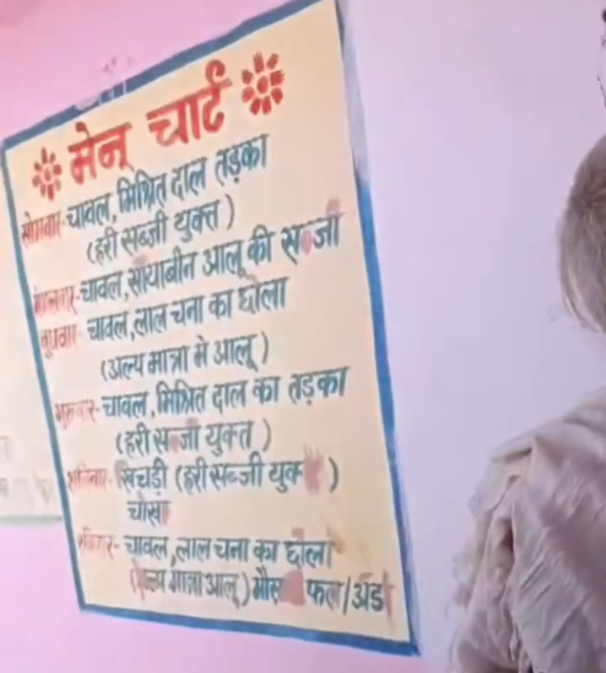 मेनू चार्ट
सोमवार-चावल, मिश्रित दाल तड़का
(हरी सब्जी युक्त)
मंगलवार-चावल, सोयाबीन आलू की सब्जी
बुधवार-चावल, लाल चना का छोला
(अल्प मात्रा मे आलू)
गुरूवार-चावल, मिश्रित दाल का तड़का
(हरी सब्जी युक्त)
खिचड़ी (हरी सब्जी युक्त)
चोखा
चावल, लाल चना का छोला
(अल्प मात्रा आलू) फल/अंडा